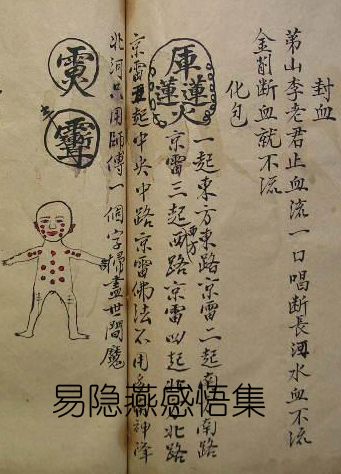 封血
苐山李老君止血流一口唱断長河水血不流
金削断血就不流
化包
庫蓮蓮火
一起東方東路京雷二起南方南路
京雷三起西方西路京雷四起北方北路
京雷五起中央中路京雷佛法不用多雷神降
北河只用師傅一個字掃盡世間魔
易隐燕感悟集